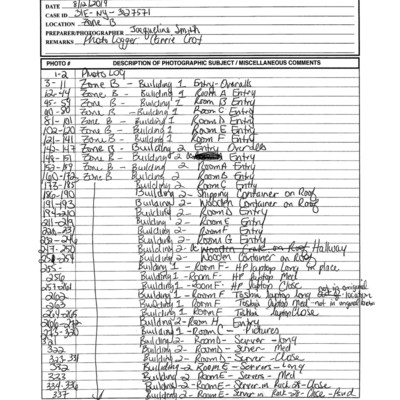 DATE 8/12/2019
CASE ID 31E-NY-3027571
LOCATION Zone B
PREPARER/PHOTOGRAPHER Jacqueline Smith
REMARKS Photo Logger
PHOTO # DESCRIPTION OF PHOTOGRAPHIC SUBJECT / MISCELLANEOUS COMMENTS
1-2 Photo Log
3-11 Zone B - Building 1 Entry-Overalls
12-44 Zone B - Building 1 Room A Entry
45-59 Zone B - Building 1 Room B Entry
60-80 Zone B - Building 1 Room C Entry
81-101 Zone B - Building 1 Room D Entry
102-120 Zone B - Building 1 Room E Entry
121-141 Zone B - Building 1 Room F Entry
142-147 Zone B - Building 2 Entry Overalls
148-151 Zone B - Building 2 Entry
152-159 Zone B - Building 2 Room A Entry
160-172 Zone B Building 2 Room B Entry
173-185 Building 2 Room C Entry
186-190 Building 2 - Shipping Container on Roof
191-193 Building 2 - Wooden Container on Roof
194-210 Building 2 - Room D Entry
211-219 Building 2 - Room E Entry
220-231 Building 2 - Room F Entry
232-246 Building 2 - Room G Entry
247-250 Building 2 - Hallway
251-254 Building 2 - Wooden Container on Roof
255- Building 1 - Room F - HP laptop Long in place
256 Building 1 - Room F - HP laptop Med
257-261 Building 1 - Room F - HP laptop Close
262 Building 1 - Room F - Toshiba laptop Long not in original location
263 Building 1 - Room F Toshiba laptop Med not in original location
264-265 Building 1 - Room F Toshiba laptop Close
266-272 Building 2 - Room H Entry
273-320 Building 1 - Room C - Pictures
321 Building 2 - Room D - Server - Long
322 Building 2 - Room D - Server - Med
323-331 Building 2 - Room D - Server - Close
332 Building 2 - Room E - Servers - Long
333 Building 2 - Room E - Servers - Med
334-336 Building 2 - Room E - Server in Rack - Close
337 Building 2 - Room E - Server in Rack - Close